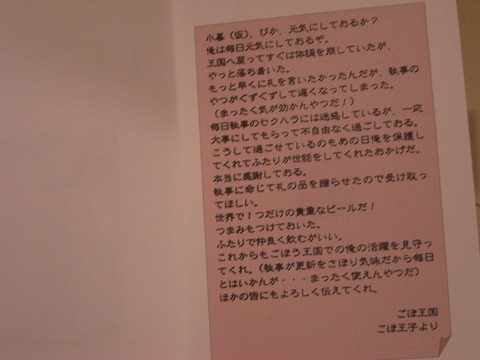 小暮（仮）、ぴか、元気にしておるか？
俺は毎日元気にしておるぞ。
王国へ戻ってすぐは体調を崩していたが、
やっと落ち着いた。
もっと早くに礼を言いたかったんだが、執事の
やつがぐずぐずして遅くなってしまった。
（まったく気が効かんやつだ！）
毎日執事のセクハラには迷惑しているが、一定
大事にしてもらって不自由なく過ごしておる。
こうして過ごせているのもあの日俺を保護し
てくれてふたりが世話をしてくれたおかげだ。
本当に感謝しておる。
執事に命じて礼の品を贈らせたので受け取っ
てほしい。
世界で１つだけの貴重なビールだ！
つまみもつけておいた。
ふたりで仲良く飲むがいい。
これからもごぼう王国での俺の活躍を見守っ
てくれ。（執事が更新をさぼり気味だから毎日
とはいかんが・・・まったく使えんやつだ）
ほかの皆にもよろしく伝えてくれ。
ごぼ王国
ごぼ王子より